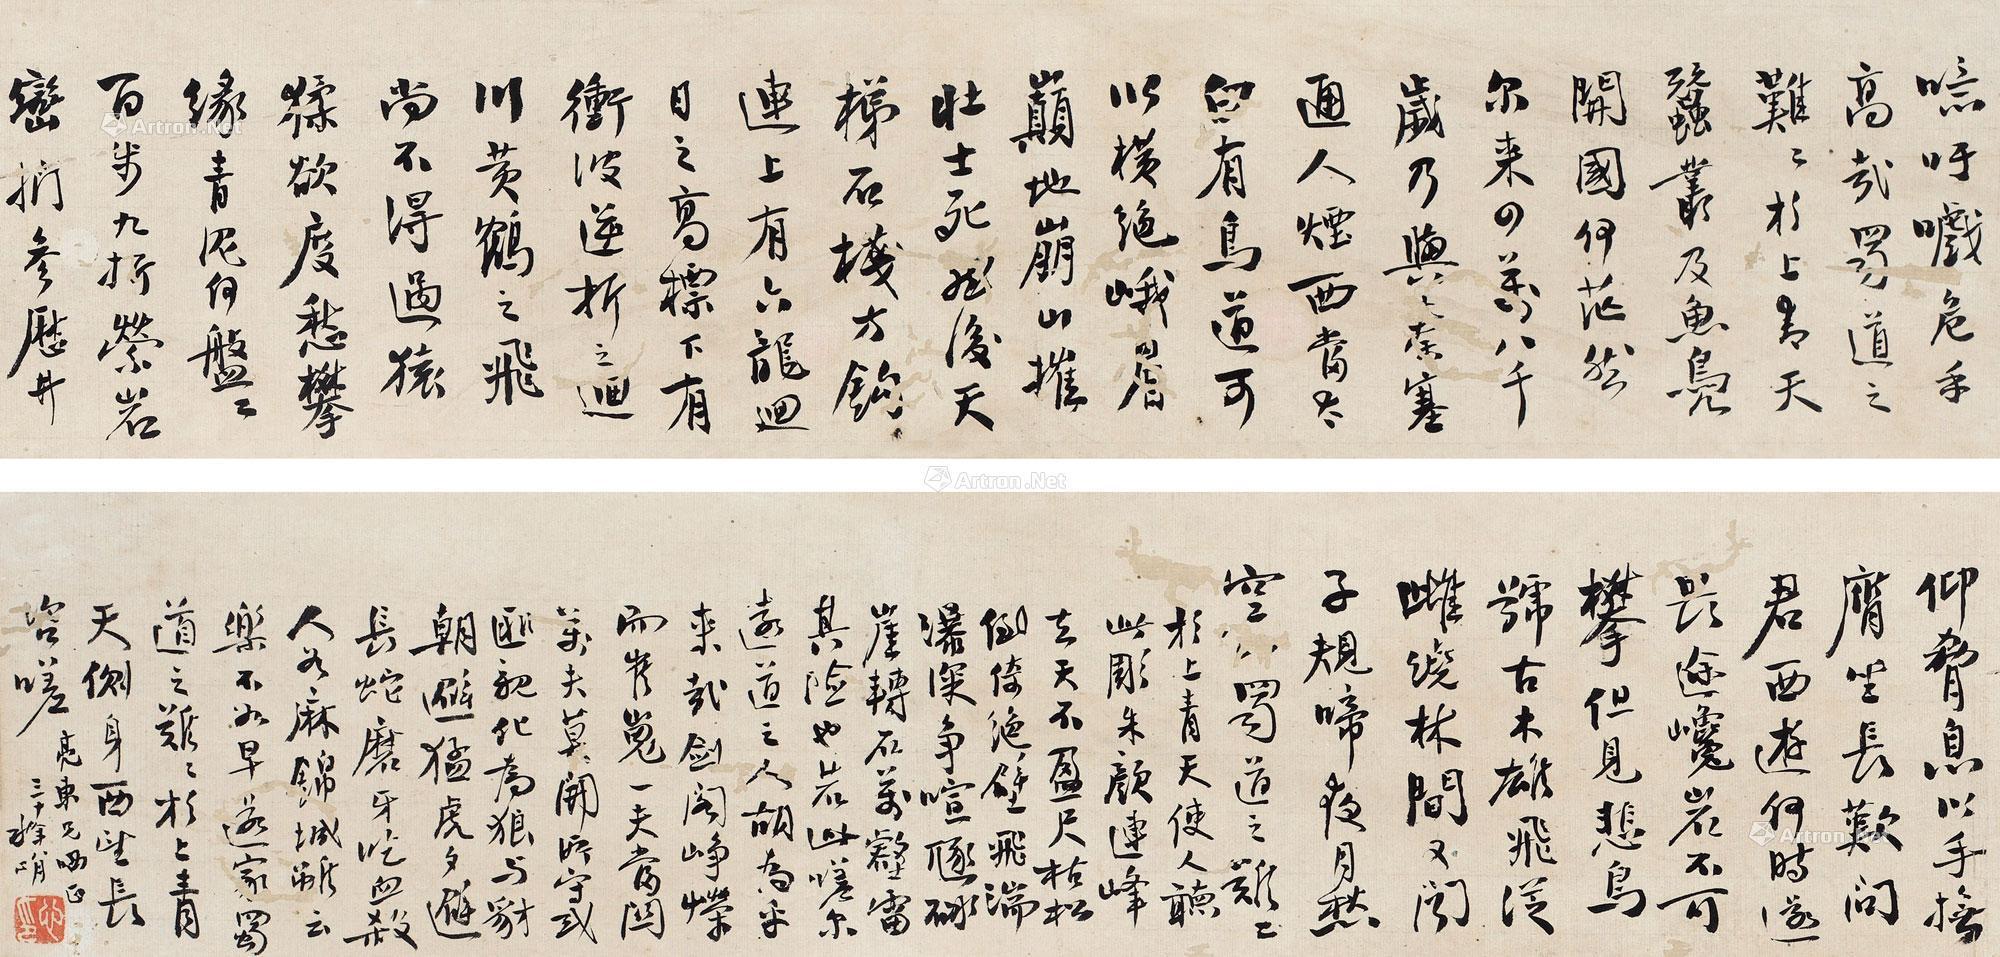 噫吁嚱危乎
高哉蜀道之
難〻於上青天
蠶叢及魚鳧
開國何茫然
尔来四萬八千
歲乃與〻秦塞
通人煙西當太
白有鳥道可
以橫絕峨眉
巔地崩山摧
壯士死然後天
梯石棧方鉤
連上有六龍迴
日之高標下有
衝波逆折之迴
川黃鶴之飛
尚不得過猿
猱欲度愁攀
緣青泥何盤〻
百步九折縈岩
巒捫參歷井
仰脅息以手撫
膺坐長歎問
君西遊何時還
畏途巉岩不可
攀但見悲鳥
號古木雄飛從
雌繞林間又聞
子規啼夜月愁
空山蜀道之難〻
於上青天使人聽
此彫朱顏連峰
去天不盈尺枯松
倒倚絕壁飛湍
瀑深爭喧豗砯
崖轉石萬壑雷
其險也若此嗟尔
遠道之人胡為乎
来哉劍閣崢嶸
而崔嵬一夫當關
萬夫莫開所守或
匪親化為狼与豺
朝避猛虎夕避
長蛇磨牙吮血殺
人如麻錦城雖云
樂不如早還家蜀
道之難〻於上青
天側身西望長
咨嗟
亮東兄哂正
Artron.Net
Artron.Net
Artron.Net
Artron.Net